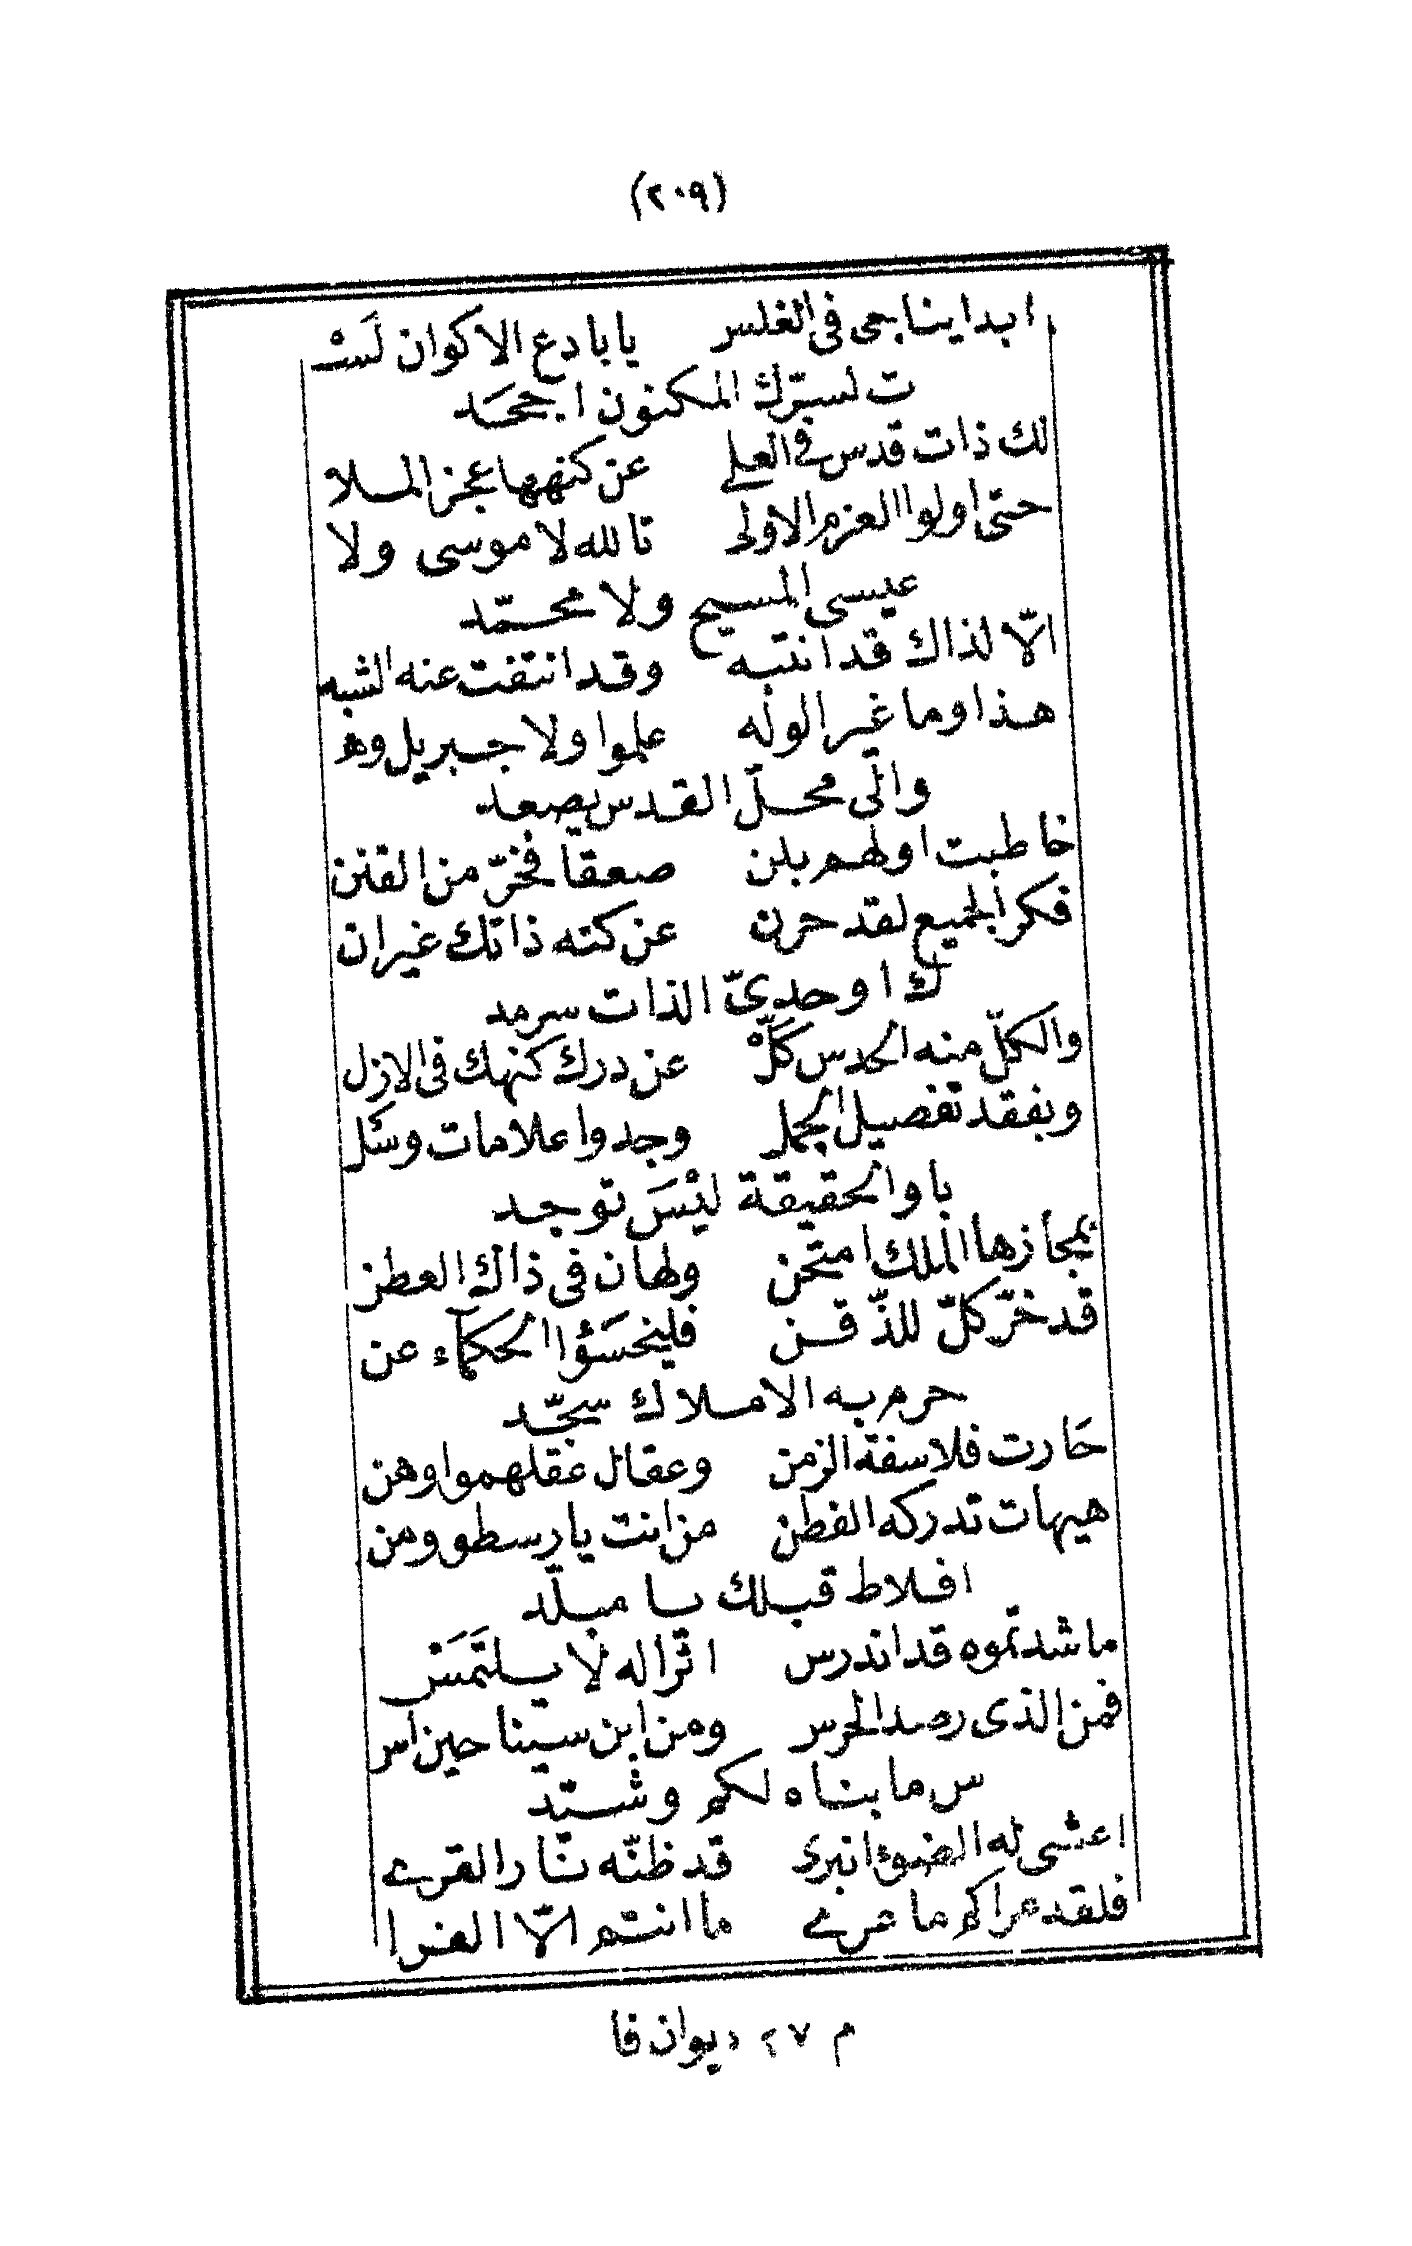 (٢٠٩)
ابدا يناجى فى الغلس يا بادع الاكوان لَسْـ
ت لسرّك المكنون اجحَد
لك ذات قدس فى العلى عن كنهها عجز الملا
حتى اولوا العزم الاولى تالله لا موسى ولا
عيسى المسيح ولا محمّد
الّا لذاك قد انتبه وقد انتفت عنه الشبه
هذا وما غير الوله علموا ولا جبريل وهْـ
والى محلّ القدس يصعد
خاطبت اولهم بلن صعقاً فخرّ من القنن
فكر الجميع لقد حرن عن كنه ذاتك غير ان
ك اوحدىّ الذات سرمد
والكلّ منه الحدس كَلّْ عن درك كنهك فى الازل
وبفقد تفصيل الجمل وجدوا علامات وسَل
با والحقيقة ليْسَ توجد
بمجازها الملك امتحن ولهان فى ذاك العطن
قد خرّ كلّ للذّقن فليخسَؤا الحكمآء عن
حرم به الاملاك سجّد
حَارت فلاسفة الزمن وعقال عقلهموا وهن
هيهات تدركه الفطن من انت يا رسطو ومن
افلاط قبلك يا مبلّد
ما شدتموه قد اندرس اثر اله لا يلتَمَسْ
فمن الذى رصد الحرس ومن ابن سينا حين اس
س ما بناه لكم وشيّد
اعشى له الضوئ انبرى قد ظنّه نّارا القرى
فلقد عراكم ما عرى ما انتم الّا الفرا
م ٢٧ ديوان فا